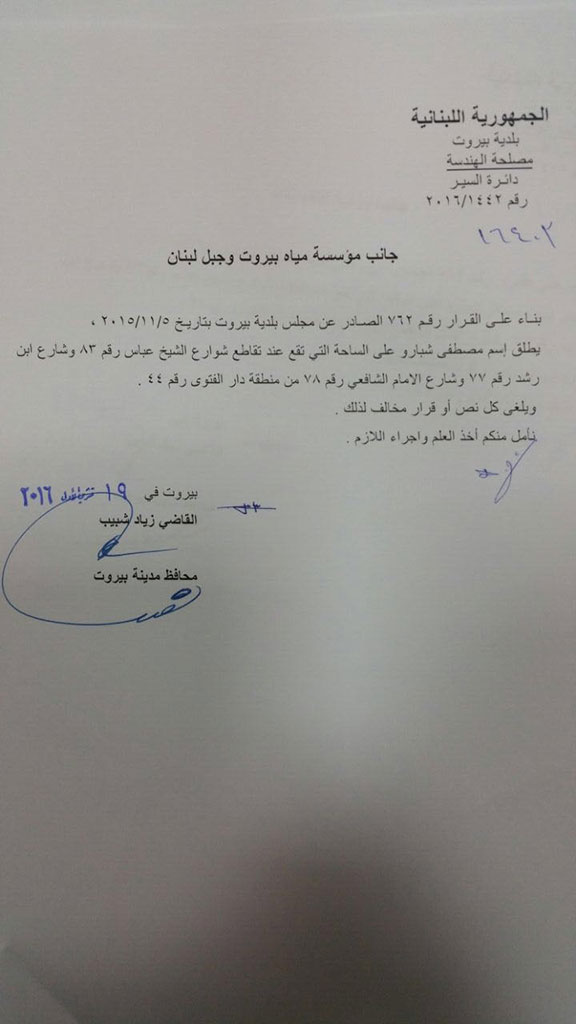 الجمهورية اللبنانية
بلدية بيروت
مصلحة الهندسة
دائرة السير
رقم ٢٠١٦/١٤٤٢
١٦٤٠٢
جانب مؤسسة مياه بيروت وجبل لبنان
بناء على القرار رقم ٧٦٢ الصادر عن مجلس بلدية بيروت بتاريخ ٢٠١٥/١١/٥ ،
يطلق إسم مصطفى شبارو على الساحة التي تقع عند تقاطع شوارع الشيخ عباس رقم ٨٣ وشارع ابن
رشد رقم ٧٧ وشارع الامام الشافعي رقم ٧٨ من منطقة دار الفتوى رقم ٤٤ .
ويلغى كل نص أو قرار مخالف لذلك .
نأمل منكم أخذ العلم واجراء اللازم .
بيروت في ١٩ ٢٠١٦
القاضي زياد شبيب
محافظ مدينة بيروت